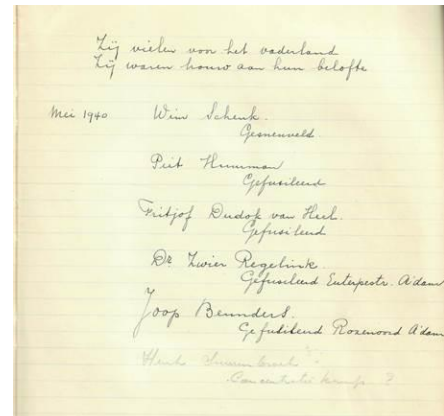 Zij vielen voor het vaderland
Zij waren trouw aan hun belofte
Mei 1940 Wim Schenk.
Gesneuveld
Piet Huurman
Gefusileerd
Fritjof Dudok van Heel.
Gefusileerd
Dr. Zwier Regelink.
Gefusileerd Euterpestr. A'dam
Joop Beunders.
Gefusileerd Rozenoord A'dam
Henk
Concentratie kamp ?